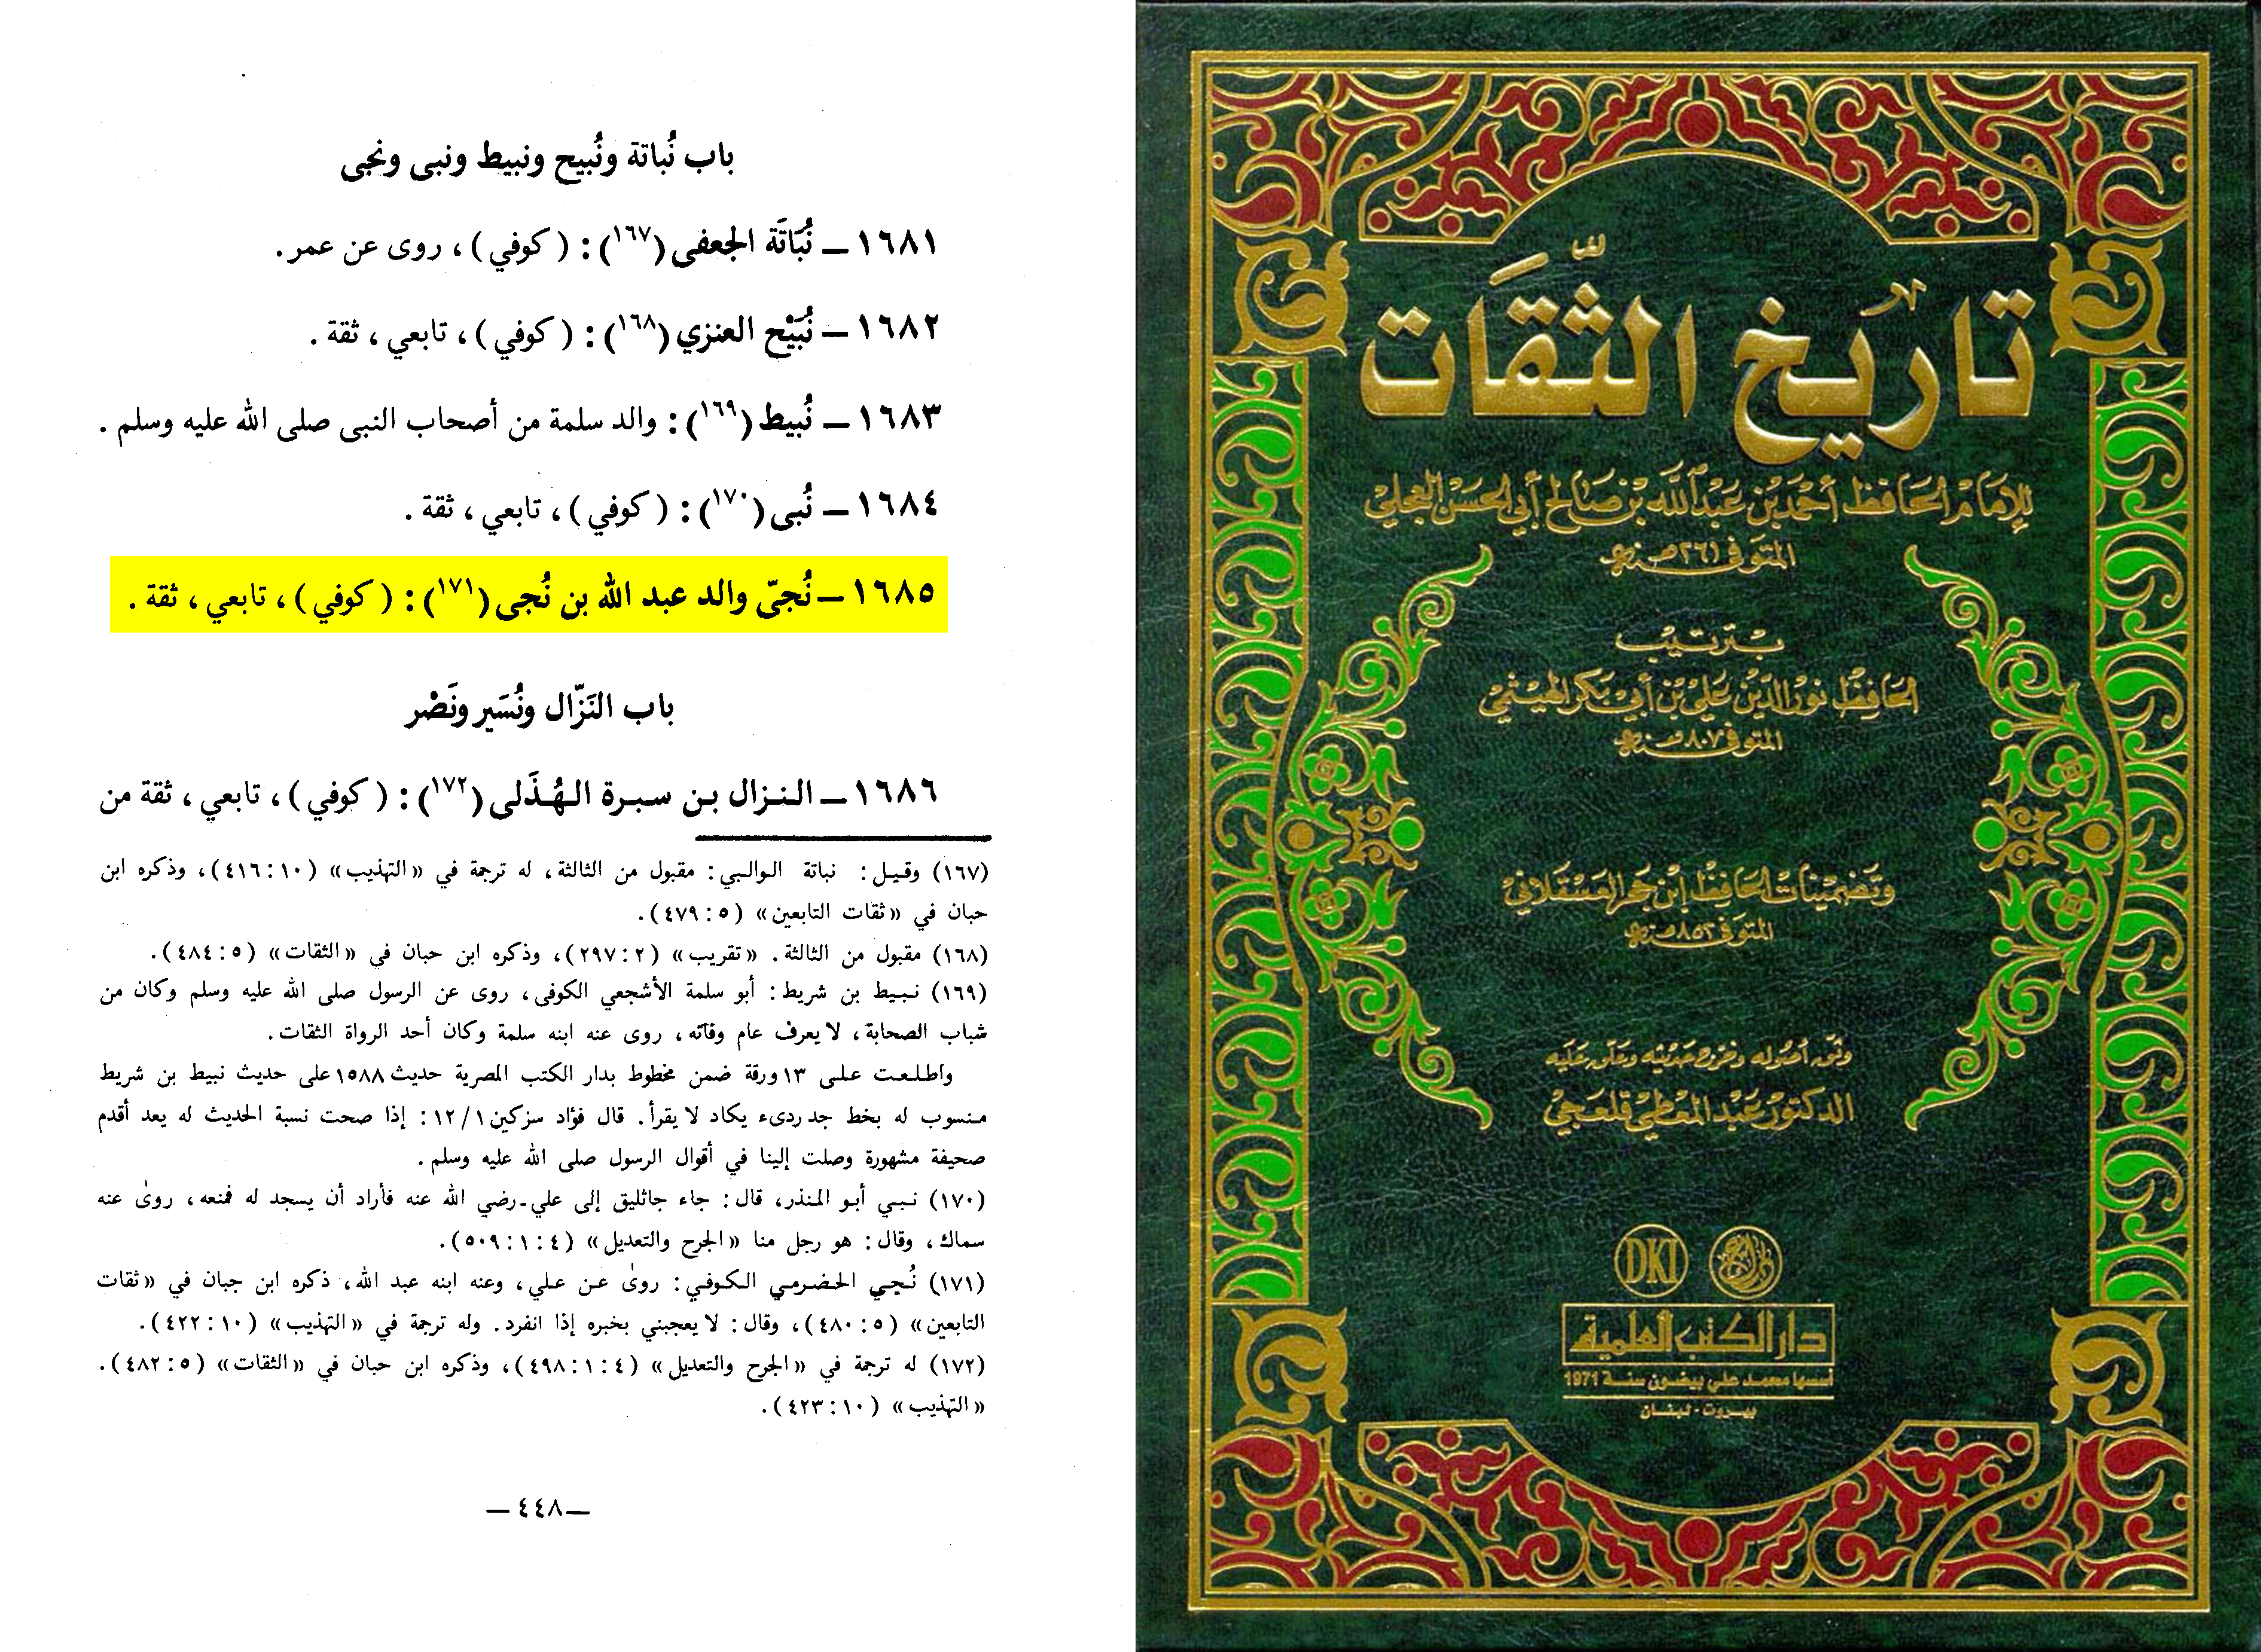 باب نُباتة ونُبيح ونبيط ونبى ونجى
١٦٨١ – نُبَاتَة الجعفى (١٦٧): (كوفي)، روى عن عمر.
١٦٨٢ – نُبَيْح العنزي (١٦٨): (كوفي)، تابعي، ثقة.
١٦٨٣ – نُبيط (١٦٩): والد سلمة من أصحاب النبى صلى الله عليه وسلم.
١٦٨٤ – نُبى (١٧٠): (كوفي)، تابعي، ثقة.
١٦٨٥ – نُجىّ والد عبد الله بن نُجى (١٧١): (كوفي)، تابعي، ثقة.
باب النَزّال ونُسَير ونَصْر
١٦٨٦ – النزال بن سبرة الهُذَلى (١٧٢): (كوفي)، تابعي، ثقة من
(١٦٧) وقيل: نباتة الوالبي: مقبول من الثالثة، له ترجمة في «التهذيب» (١٠: ٤١٦)، وذكره ابن
حبان في «ثقات التابعين» (٥: ٤٧٩).
(١٦٨) مقبول من الثالثة. «تقريب» (٢: ٢٩٧)، وذكره ابن حبان في «الثقات» (٥: ٤٨٤).
(١٦٩) نبيط بن شريط: أبو سلمة الأشجعي الكوفى، روى عن الرسول صلى الله عليه وسلم وكان من
شباب الصحابة، لا يعرف عام وفاته، روى عنه ابنه سلمة وكان أحد الرواة الثقات.
واطلعت على ١٣ ورقة ضمن مخطوط بدار الكتب المصرية حديث ١٥٨٨ على حديث نبيط بن شريط
منسوب له بخط جد ردىء يكاد لا يقرأ. قال فؤاد سزكين ١/ ١٢: إذا صحت نسبة الحديث له يعد أقدم
صحيفة مشهورة وصلت إلينا في أقوال الرسول صلى الله عليه وسلم.
(١٧٠) نبي أبو المنذر، قال: جاء جاثليق إلى علي - رضي الله عنه فأراد أن يسجد له فمنعه، روىٰ عنه
سماك، وقال: هو رجل منا «الجرح والتعديل» (٤: ١: ٥٠٩).
(١٧١) نُجي الحضرمي الكوفي: روىٰ عن علي، وعنه ابنه عبد الله، ذكره ابن جبان في «ثقات
التابعين» (٥: ٤٨٠)، وقال: لا يعجبني بخبره إذا انفرد. وله ترجمة في «التهذيب» (١٠: ٤٢٢).
(١٧٢) له ترجمة في «الجرح والتعديل» (٤: ١: ٤٩٨)، وذكره ابن حبان في «الثقات» (٥: ٤٨٢).
«التهذيب» (١٠: ٤٢٣).
— ٤٤٨ —
تاريخ الثِّقَات
للإمام الحافظ أحمد بن عبد الله بن صالح أبي الحسن العجلي
المتوفى ٢٦١ هـ سنة
بترتيب
الحافظ نور الدين علي بن أبي بكر الهيثمي
المتوفى ٨٠٧ هـ سنة
وتضمينات الحافظ ابن حجر العسقلاني
المتوفى ٨٥٢ هـ سنة
وثق أصوله وخرج حديثه وعلق عليه
الدكتور عبد المعطي قلعجي
DKI
دار الكتب العلمية
أسسها محمد علي بيضون سنة 1971
بيروت - لبنان